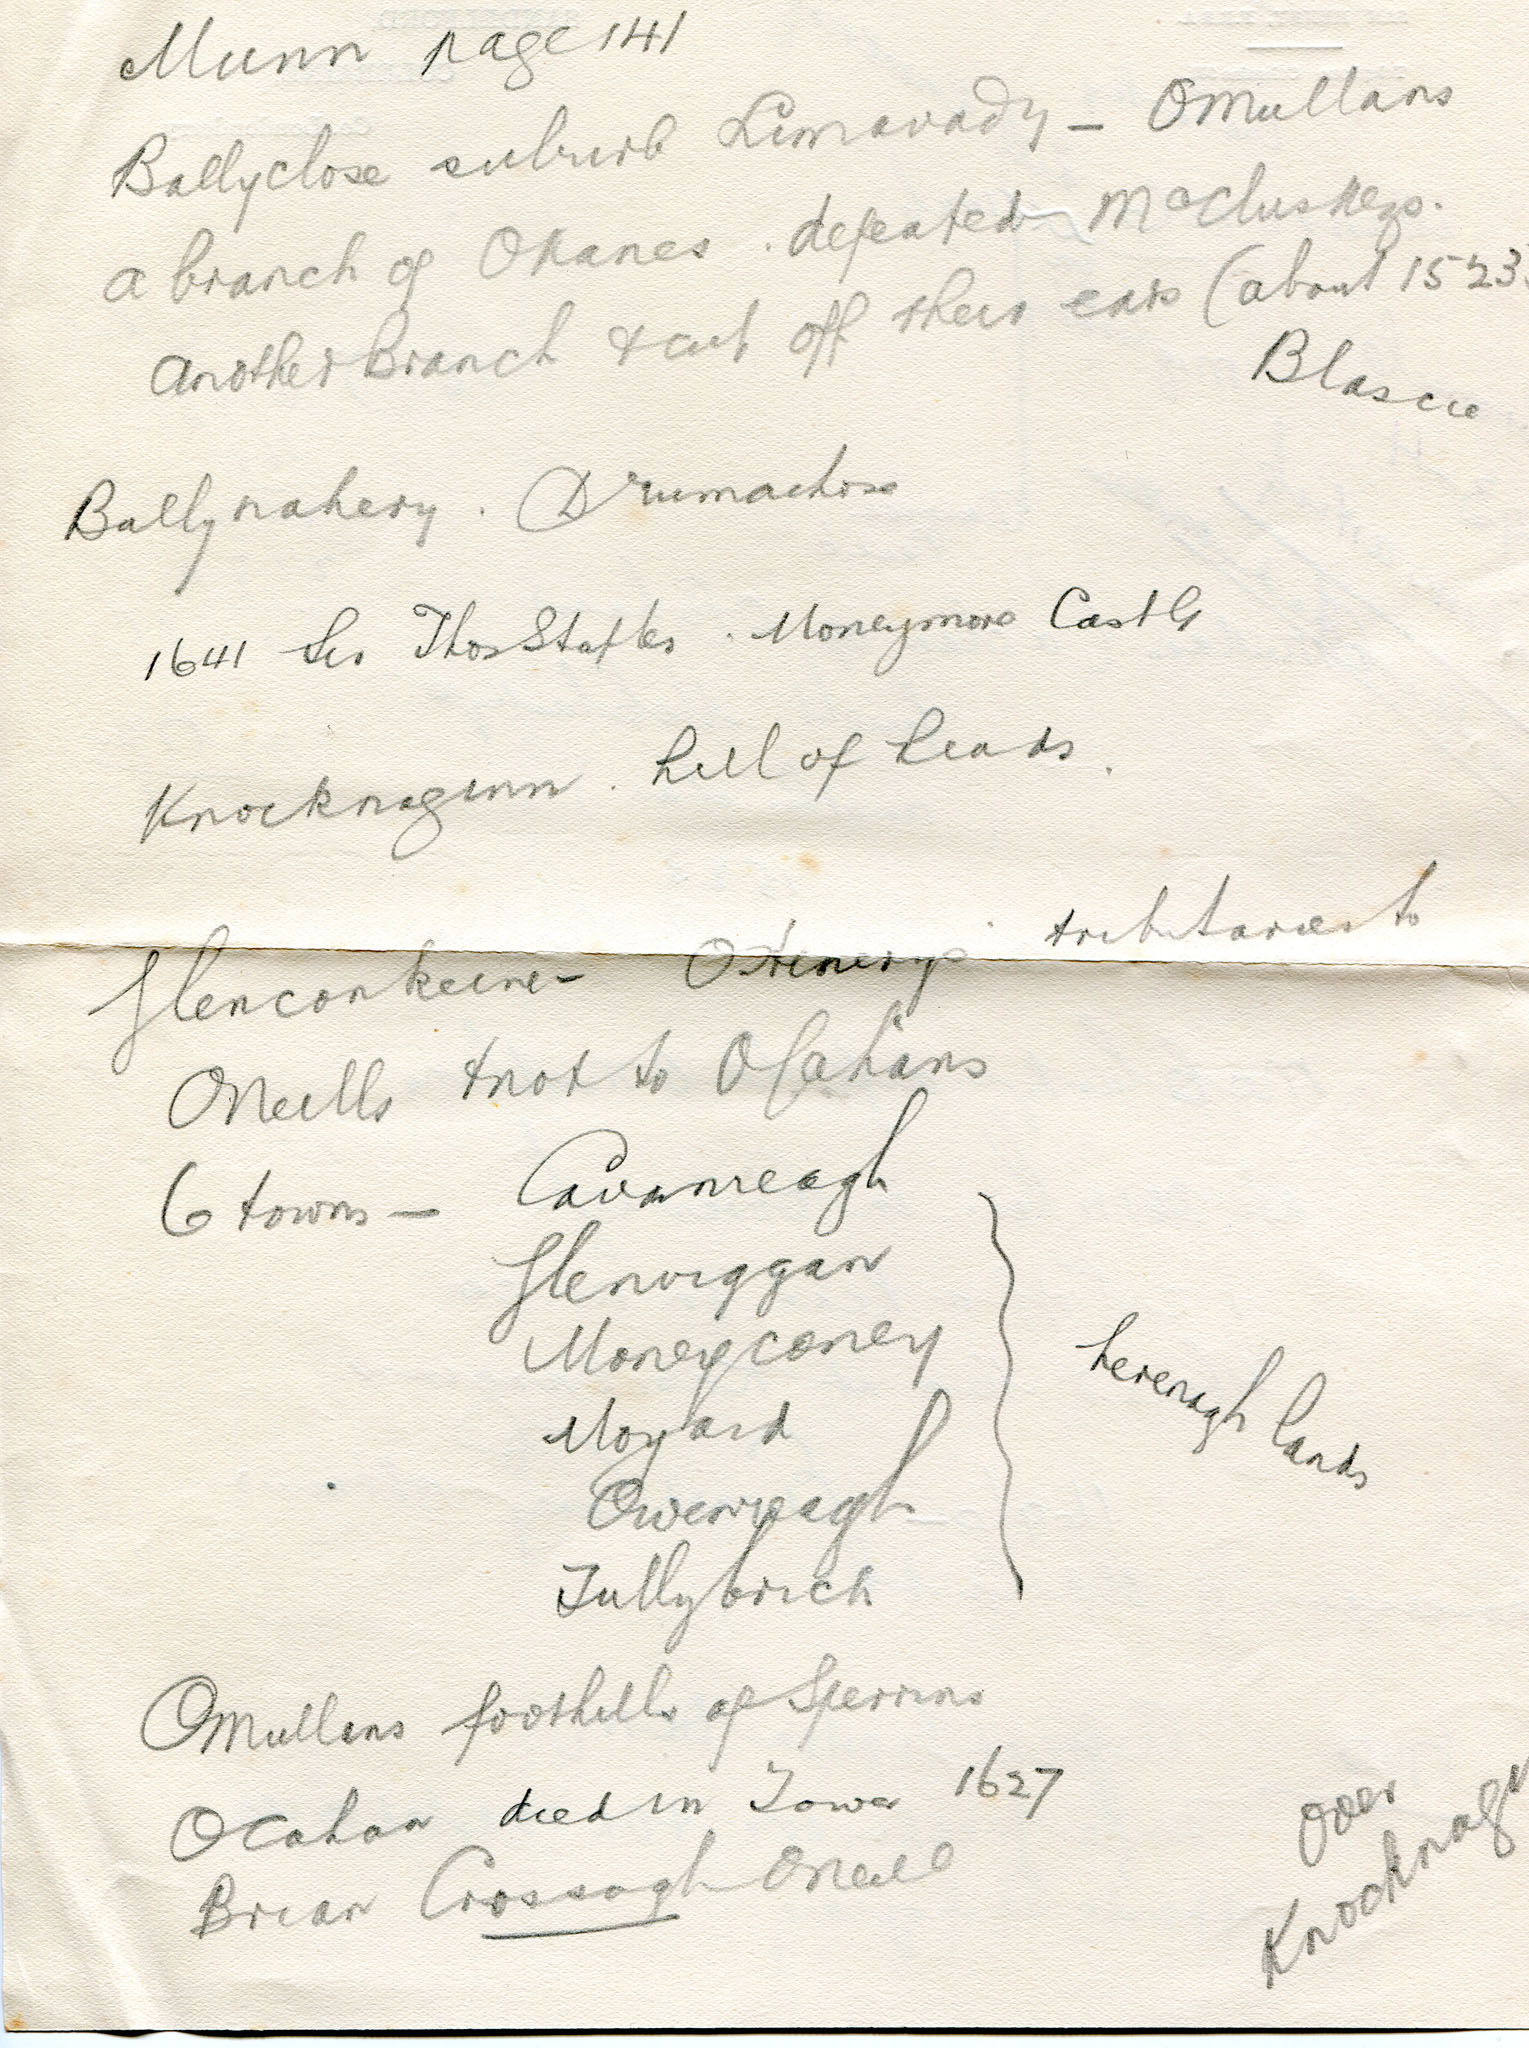 Munn page 141
Ballyclose suburb Limavady - OMullans
a branch of OKanes . defeated McCluskeys.
another branch & cut off their ears (about 1523
Blascu
Ballynahery . Drumachose
1641 Sir Thos Staples . Moneymore Castle
Knocknaginn . hill of heads.
Glenconkeine - tributaries to
ONeills & not to OCahans
6 towns - Cavanreagh
Glenviggan
Moneyconey
Moyard
Owenreagh
Tullybrick
herenagh lands
OMullans foothills of Sperrins
OCahan died in Tower 1627
Brian Crossagh ONeill
over